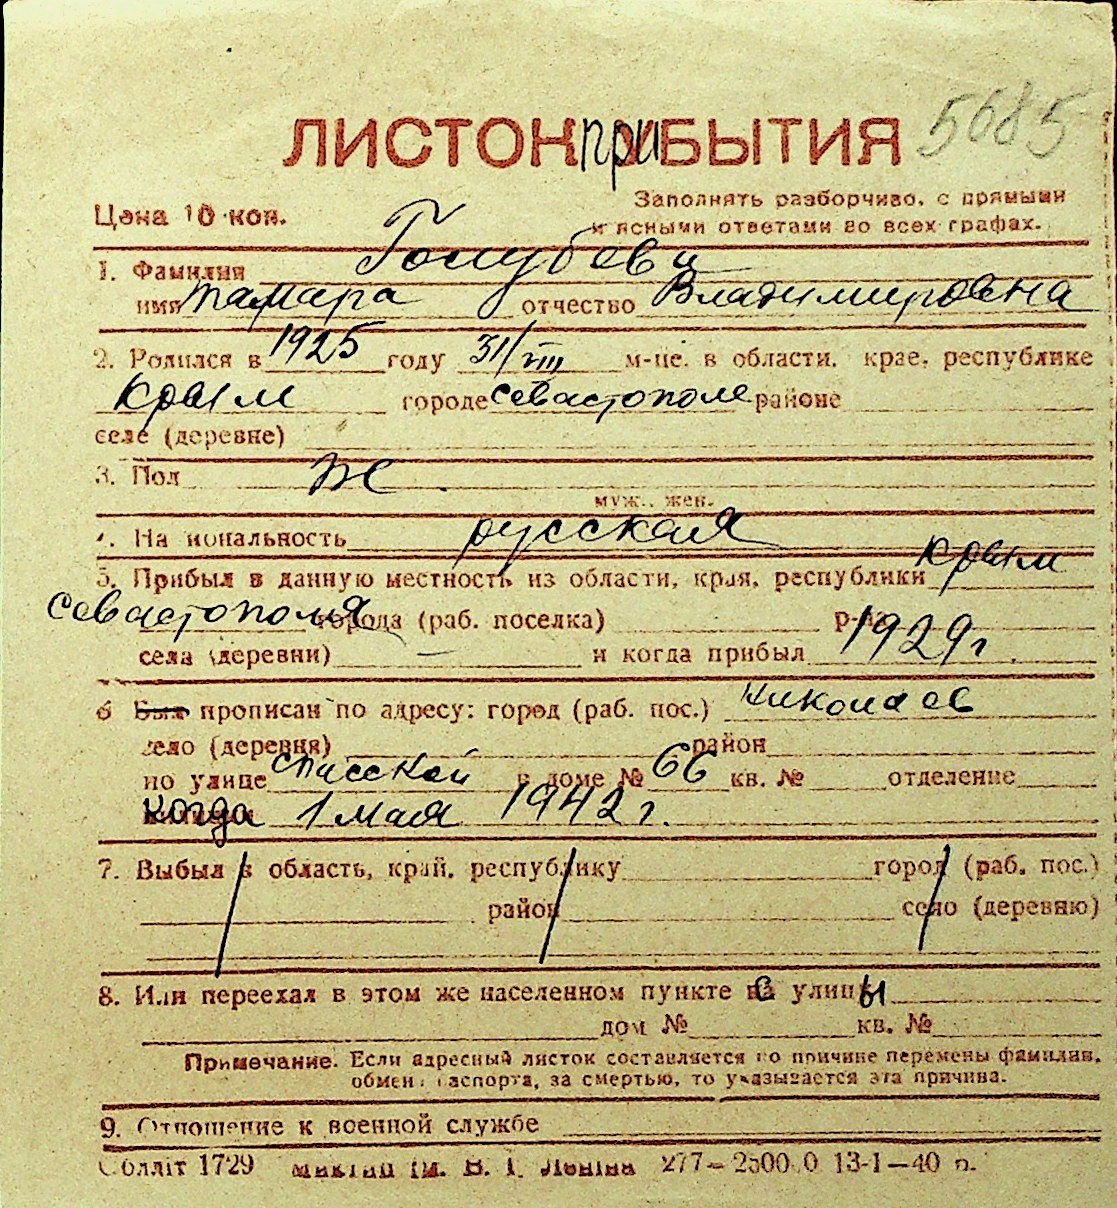 ЛИСТОК приБЫТИЯ 5685
Цена 10 коп.
Заполнять разборчиво, с прямыми
и ясными ответами во всех графах.
1. Фамилия Голубева
имя Тамара отчество Владимировна
2. Родился в 1925 году 31/VIII м-це, в области, крае, республике
Крым городе Севастополе районе
селе (деревне)
3. Пол Ж.
муж., жен.
4. Национальность русская
5. Прибыл в данную местность из области, края, республики Крым
Севастополя города (раб. поселка) р-на
села (деревни) — и когда прибыл 1929 г.
6 Был прописан по адресу: город (раб. пос.) Николаев
село (деревня) район
по улице Спасской в доме № 66 кв. № отделение
когда 1 мая 1942 г.
7. Выбыл в область, край, республику город (раб. пос.)
район село (деревню)
8. Или переехал в этом же населенном пункте с улицы
дом № кв. №
Примечание. Если адресный листок составляется по причине перемены фамилии,
обмена паспорта, за смертью, то указывается эта причина.
9. Отношение к военной службе
Обллiт 1729 iм. В. I. Ленiна 277—250000 13-I—40 р.